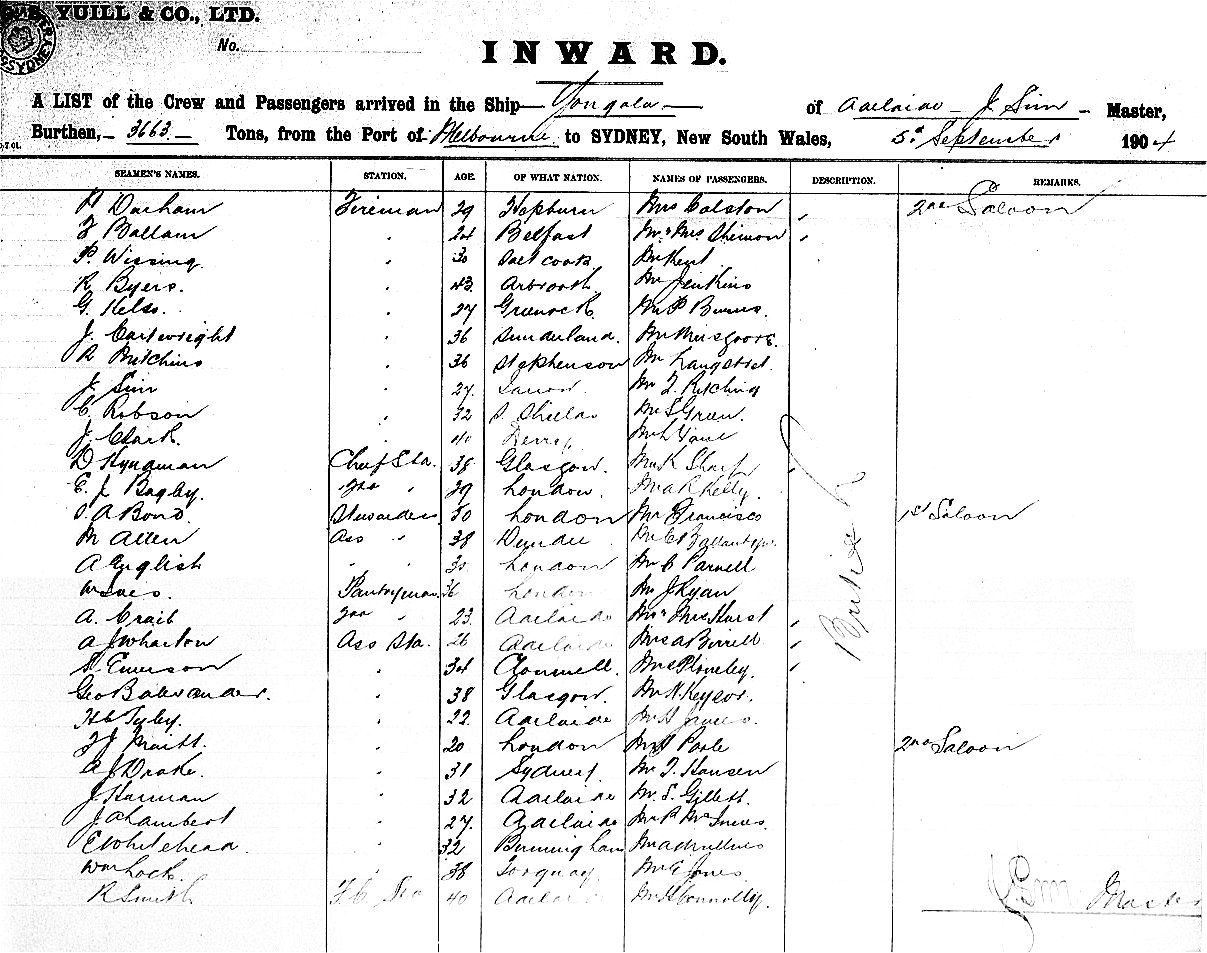 YUILL & CO., LTD.
No.
INWARD.
A LIST of the Crew and Passengers arrived in the Ship Yongala of Adelaide J. Sim Master,
Burthen, 3663 Tons, from the Port of Melbourne to SYDNEY, New South Wales, 5th September 1904
SEAMEN'S NAMES. STATION. AGE. OF WHAT NATION. NAMES OF PASSENGERS. DESCRIPTION. REMARKS.
Durham Fireman 29 Hepburn Mrs Colston 2nd Saloon
Ballam 24 Belfast Mr & Mrs
P. Wissing 30 Saltcoats Mr Kent
R Byers. 43 Arbroath Mr Jenkins
G. Kelso. 27 Greenock Mr P Burns.
J. Cartwright 36 Sunderland. Mr Musgrove.
R Mutchins 36 Stephenson Mr Langstreet.
J. Sim 27. Mr
C. Robson 32 S. Shields Mr S Green.
J. Clark. 40 Derry Mr L Vane
D Hyndman Chief Sta. 38 Glasgow. Mr R Sharp
E. J. Bagby. 2nd 29 London. Mr A R Kelly.
A Bond Stewardess 30 London Mr Francisco 1st Saloon
M Allen Ass 38 Dundee Mr C Ballantyne.
A English 30 London Mr C Parnell
Pantryman 36 London Mr J Ryan
A. Craib 2nd 23. Adelaide Mr & Mrs Hurst
A J Wharton Ass Sta. 26 Adelaide Mrs A Birrell
S. Emerson 34 Clonmell. Mrs
Geo 38 Glasgow. Mr N Keysor.
H C Tyley. 22. Adelaide Mr H James.
20 London Mr Poole 2nd Saloon
A J Drake. 31 Sydney. Mr T. Hansen
J Harman 32 Adelaide Mr. S. Gillett.
J A Lambert 27. Adelaide Mr P McInnes.
E Whitehead. 32 Birmingham
Wm Lock. 38 Torquay Mr E Jones.
R Smith 40 Adelaide Mr H Connolly.
British
J. Sim Master